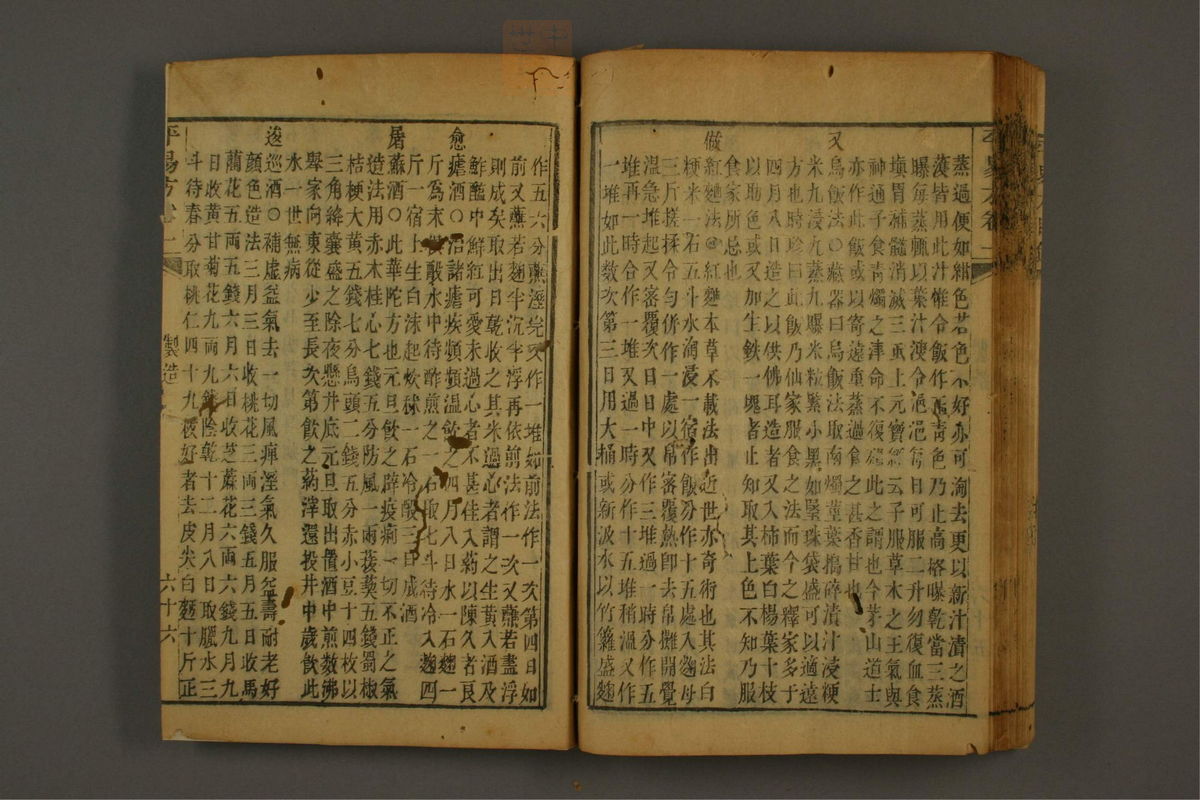 蒸過便如紺色若色不好亦可淘去更以新汁漬之酒
蓤皆用此汁惟令飯作正青色乃止高格曝乾當三蒸
曝每蒸輒以葉汁溲令浥浥每日可服二升勿復血食
塡胃補髓消滅三蟲上元寶經云子服草木之王氣與
神通子食青燭之津命不復殞此之謂也今茅山道士
亦作此飯或以寄遠重蒸過食之甚香甘也
又烏飯法○藏器曰烏飯法取南燭莖葉搗碎漬汁浸粳
米九浸九蒸九曝米粒緊小黑如瑿珠袋盛可以適遠
方也時珍曰此飯乃仙家服食之法而今之釋家多于
四月八日造之以供佛耳造者又入柿葉白楊葉十枝
以助色或又加生鐵一塊者止知取其上色不知乃服
食家所忌也
做紅麯法○紅麯本草不載法出近世亦奇術也其法白
粳米一石五斗水淘浸一宿作飯分作十五處入麯母
三斤搓揉令勻併作一處以帛密覆熱卽去帛攤開覺
溫急堆起又密覆次日日中又作三堆過一時分作五
堆再一時令作一堆又過一時分作十五堆稍溫又作
一堆如此數次第三日用大桶或新汲水以竹籮盛麯
作五六分蘸溼完又作一堆如前法作一次第四日如
前又蘸若麯半沉半浮再依前法作一次又蘸若盡浮
則成矣取出日乾收之其米過心者謂之生黃入酒及
鮓醢中鮮紅可愛未過心者不甚佳入藥以陳久者良
愈瘧酒○治諸瘧疾頻頻溫飲之四月八日水一石麯一
斤為末俱酘水中待酢煎之一石取七斗待冷入麯四
斤一宿上生白沫起炊秫一石冷酘三日成酒
屠蘇酒○此華陀方也元旦飲之辟疫癘一切不正之氣
造法用赤木桂心七錢五分防風一兩菝葜五錢蜀椒
桔梗大黃五錢七分烏頭二錢五分赤小豆十四枚以
三角絳囊盛之除夜懸井底元旦取出置酒中煎數沸
舉家向東從少至長次第飲之藥滓還投井中歲飲此
水一世無病
逡巡酒○補虛益氣去一切風痺溼氣久服益壽耐老好
顏色造法三月三日收桃花三兩三錢五月五日收馬
藺花五兩五錢六月六日收芝蔴花六兩六錢九月九
日收黃甘菊花九兩九錢陰乾十二月八日取臘水三
斗待春分取桃仁四十九枚好者去皮尖白麵十斤正
平易方 卷二 製造 六十六